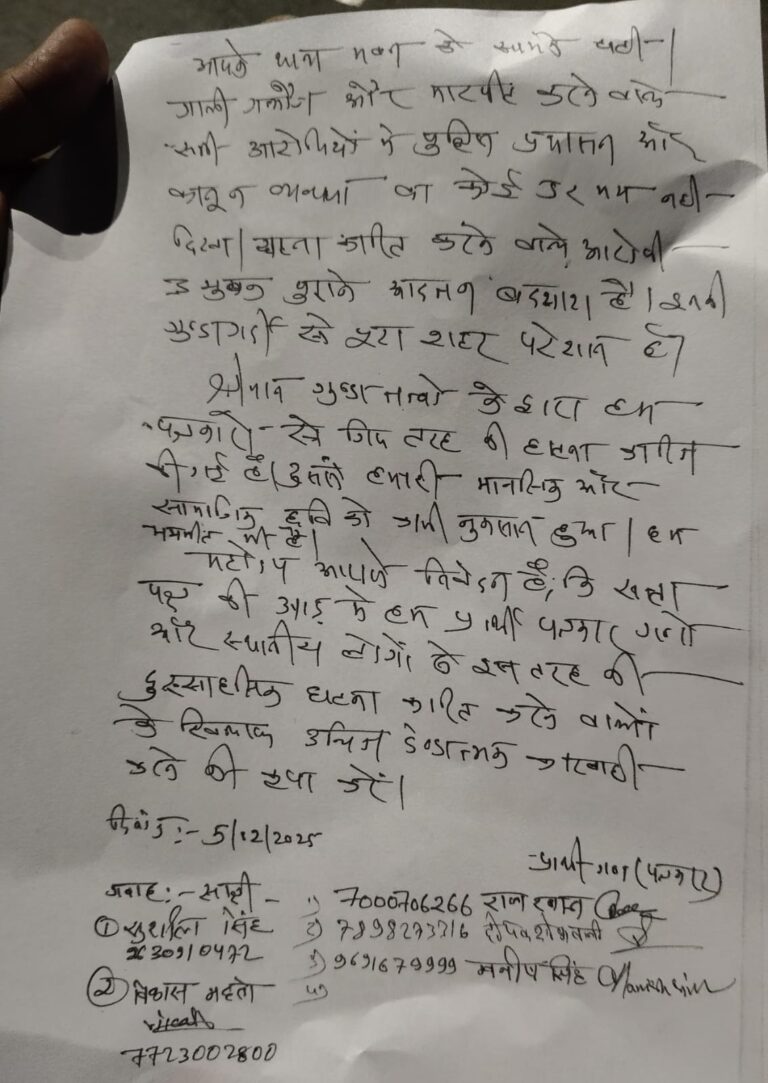 आपके थाना भवन के सामने घटी।
गाली गलौज और मारपीट करने वाले
सभी आरोपियों में पुलिस प्रशासन और
कानून व्यवस्था का कोई डर भय नही
दिखा। घटना कारित करने वाले आरोपी
उ मुबक पुराने आदतन बदमाश है। इनकी
गुण्डागर्दी से पूरा शहर परेशान है।
श्रीमान गुण्डा तत्वो के द्वारा हम
पत्रकारो से जिस तरह की घटना कारित
की गई है। इससे हमारी मानसिक और
सामाजिक छवि को भारी नुकसान हुआ। हम
भयभीत भी है।
महोदय आपसे निवेदन है, कि सत्ता
पक्ष की आड़ में हम प्रार्थी पत्रकार गणो
और स्थानीय लोगों से इस तरह की
दुस्साहसिक घटना कारित करने वालों
के खिलाफ उचित दण्डात्मक कारवाही
करने की कृपा करें।
दिनांक :- 5/12/2025
प्रार्थी गण (पत्रकार)
गवाह :- साक्षी -
1) 7000706266 राज
① सुशील सिंह
2) 7898273316 दीपक
3) 9691679999 मनीष सिंह Manish
4)
② विकास महतो
vikash
7723002800